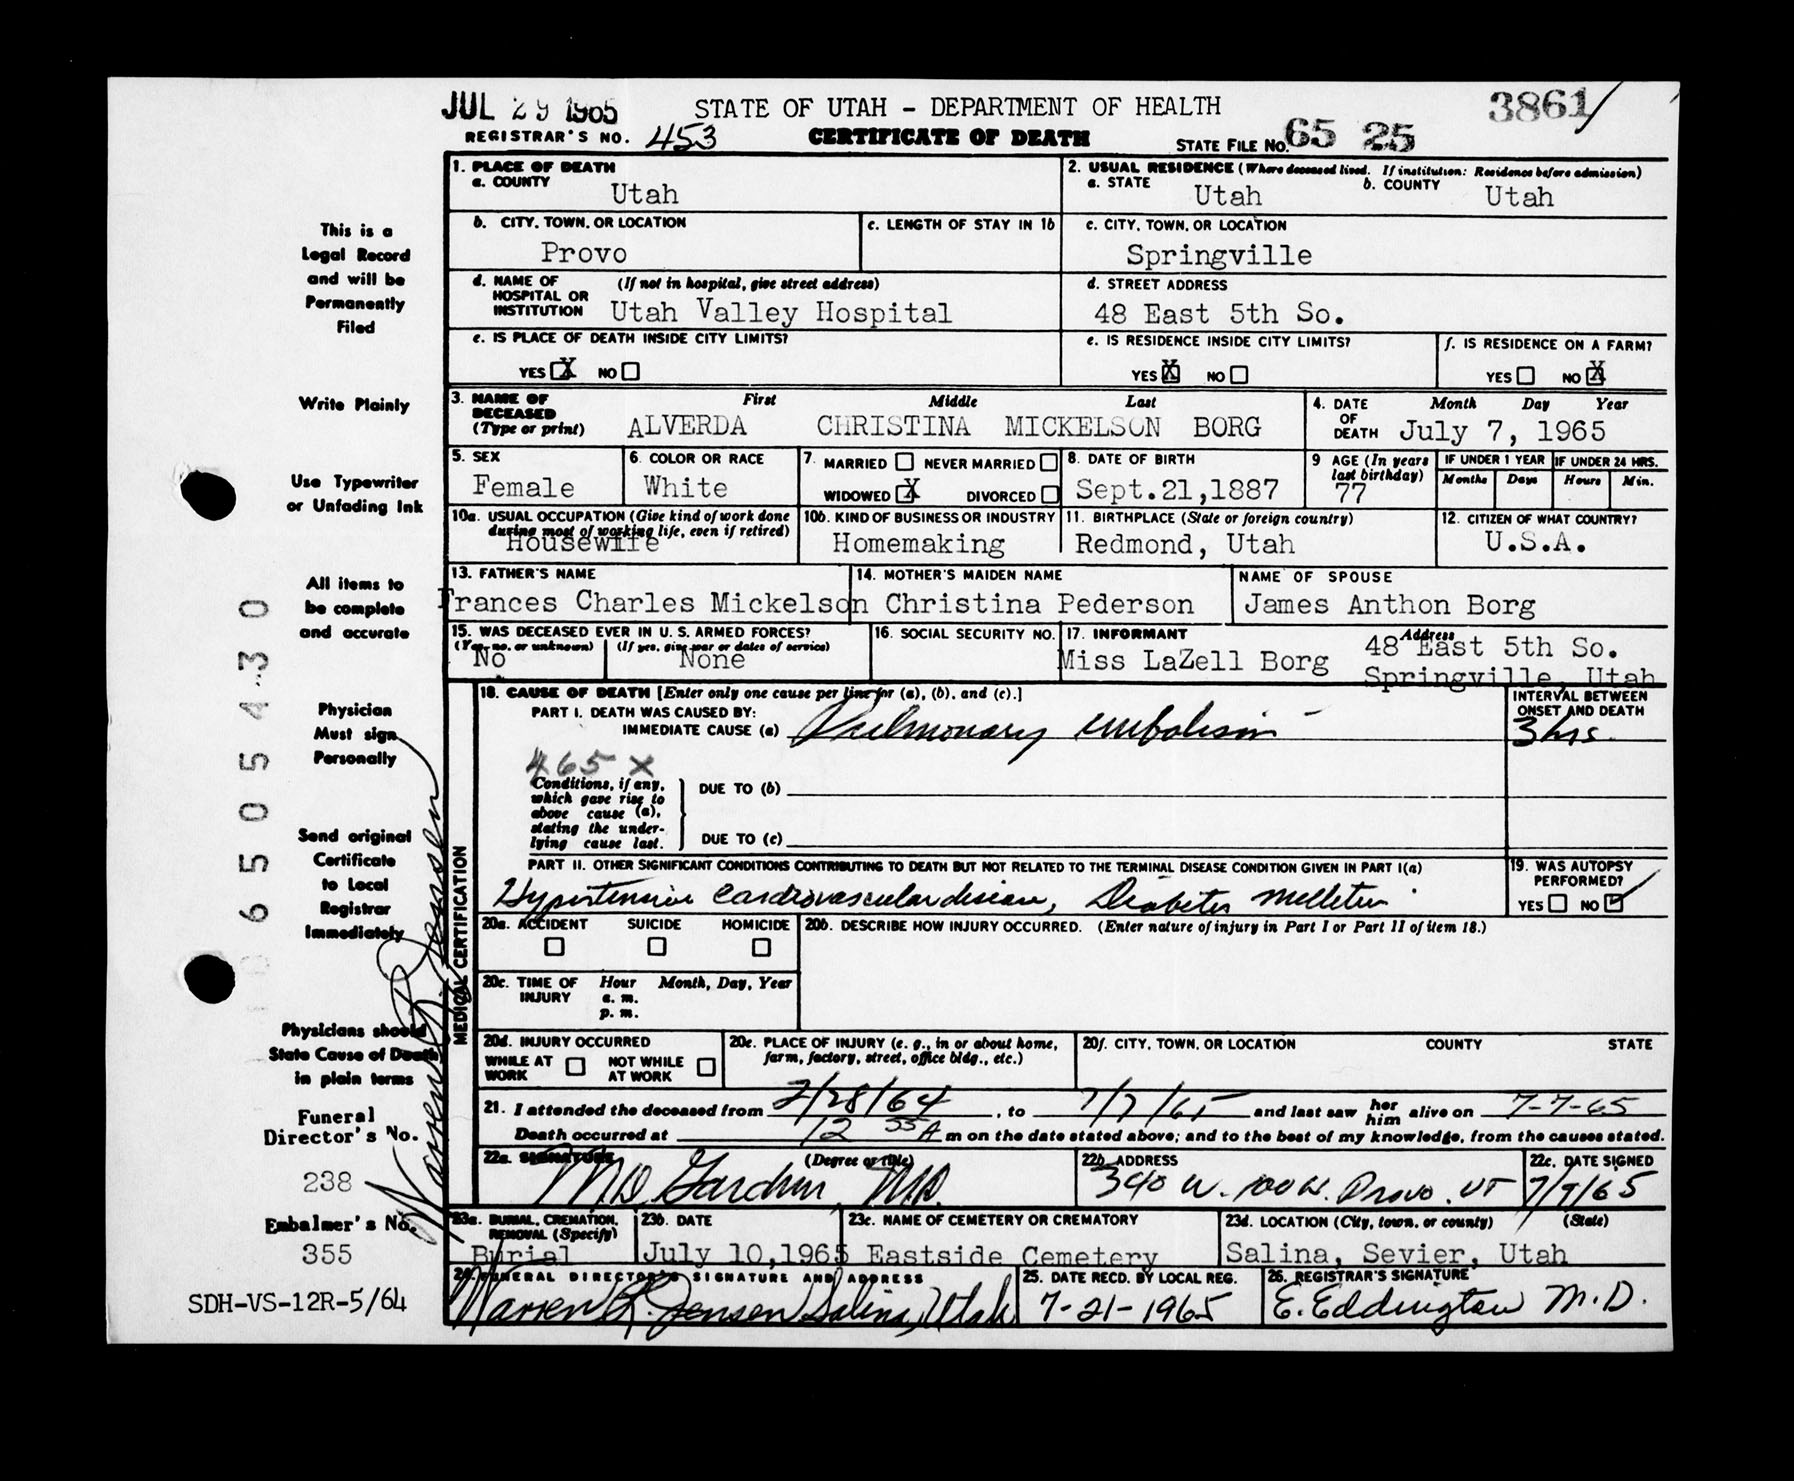 JUL 29 1965
STATE OF UTAH - DEPARTMENT OF HEALTH
3861
REGISTRAR'S NO. 453
CERTIFICATE OF DEATH
STATE FILE NO. 65 25
This is a
Legal Record
and will be
Permanently
Filed
Write Plainly
Use Typewriter
or Unfading Ink
All items to
be complete
and accurate
Physician
Must sign
Personally
Send original
Certificate
to Local
Registrar
Immediately
Physicians should
State Cause of Death
in plain terms
Funeral
Director's No.
238
Embalmer's No.
355
SDH-VS-12R-5/64
6505430
Warren R. Jensen
1. PLACE OF DEATH
a. COUNTY
Utah
2. USUAL RESIDENCE (Where deceased lived. If institution: Residence before admission)
a. STATE Utah b. COUNTY Utah
b. CITY, TOWN, OR LOCATION
Provo
c. LENGTH OF STAY IN 1b
c. CITY, TOWN, OR LOCATION
Springville
d. NAME OF HOSPITAL OR INSTITUTION (If not in hospital, give street address)
Utah Valley Hospital
d. STREET ADDRESS
48 East 5th So.
e. IS PLACE OF DEATH INSIDE CITY LIMITS?
YES X NO
e. IS RESIDENCE INSIDE CITY LIMITS?
YES X NO
f. IS RESIDENCE ON A FARM?
YES NO X
3. NAME OF DECEASED (Type or print)
First Middle Last
ALVERDA CHRISTINA MICKELSON BORG
4. DATE OF DEATH Month Day Year
July 7, 1965
5. SEX
Female
6. COLOR OR RACE
White
7. MARRIED NEVER MARRIED
WIDOWED X DIVORCED
8. DATE OF BIRTH
Sept.21,1887
9 AGE (In years last birthday)
77
IF UNDER 1 YEAR
Months Days
IF UNDER 24 HRS.
Hours Min.
10a. USUAL OCCUPATION (Give kind of work done during most of working life, even if retired)
Housewife
10b. KIND OF BUSINESS OR INDUSTRY
Homemaking
11. BIRTHPLACE (State or foreign country)
Redmond, Utah
12. CITIZEN OF WHAT COUNTRY?
U.S.A.
13. FATHER'S NAME
Frances Charles Mickelson
14. MOTHER'S MAIDEN NAME
Christina Pederson
NAME OF SPOUSE
James Anthon Borg
15. WAS DECEASED EVER IN U. S. ARMED FORCES?
(Yes, no, or unknown) (If yes, give war or dates of service)
No None
16. SOCIAL SECURITY NO.
17. INFORMANT Address
Miss LaZell Borg 48 East 5th So.
Springville, Utah
MEDICAL CERTIFICATION
18. CAUSE OF DEATH [Enter only one cause per line for (a), (b), and (c).]
INTERVAL BETWEEN ONSET AND DEATH
PART I. DEATH WAS CAUSED BY:
IMMEDIATE CAUSE (a) Pulmonary embolism 3 hrs.
465 X
Conditions, if any,
which gave rise to
above cause (a),
stating the under-
lying cause last.
DUE TO (b)
DUE TO (c)
PART II. OTHER SIGNIFICANT CONDITIONS CONTRIBUTING TO DEATH BUT NOT RELATED TO THE TERMINAL DISEASE CONDITION GIVEN IN PART I(a)
Hypertensive cardiovascular disease, Diabetes Mellitus
19. WAS AUTOPSY PERFORMED?
YES NO
20a. ACCIDENT SUICIDE HOMICIDE
20b. DESCRIBE HOW INJURY OCCURRED. (Enter nature of injury in Part I or Part II of item 18.)
20c. TIME OF INJURY Hour Month, Day, Year
a. m.
p. m.
20d. INJURY OCCURRED
WHILE AT WORK NOT WHILE AT WORK
20e. PLACE OF INJURY (e. g., in or about home, farm, factory, street, office bldg., etc.)
20f. CITY, TOWN, OR LOCATION COUNTY STATE
21. I attended the deceased from 2/28/64, to 7/7/65 and last saw her him alive on 7-7-65
Death occurred at 12 55 A m on the date stated above; and to the best of my knowledge, from the causes stated.
22a. SIGNATURE (Degree or title)
M D Gardner, M.D.
22b ADDRESS
340 W. 100 W. Provo. UT
22c. DATE SIGNED
7/9/65
23a. BURIAL, CREMATION, REMOVAL (Specify)
Burial
23b. DATE
July 10,1965
23c. NAME OF CEMETERY OR CREMATORY
Eastside Cemetery
23d. LOCATION (City, town, or county) (State)
Salina, Sevier, Utah
24. FUNERAL DIRECTOR'S SIGNATURE AND ADDRESS
Warren R. Jensen Salina, Utah
25. DATE RECD. BY LOCAL REG.
7-21-1965
26. REGISTRAR'S SIGNATURE
E. Eddington M.D.